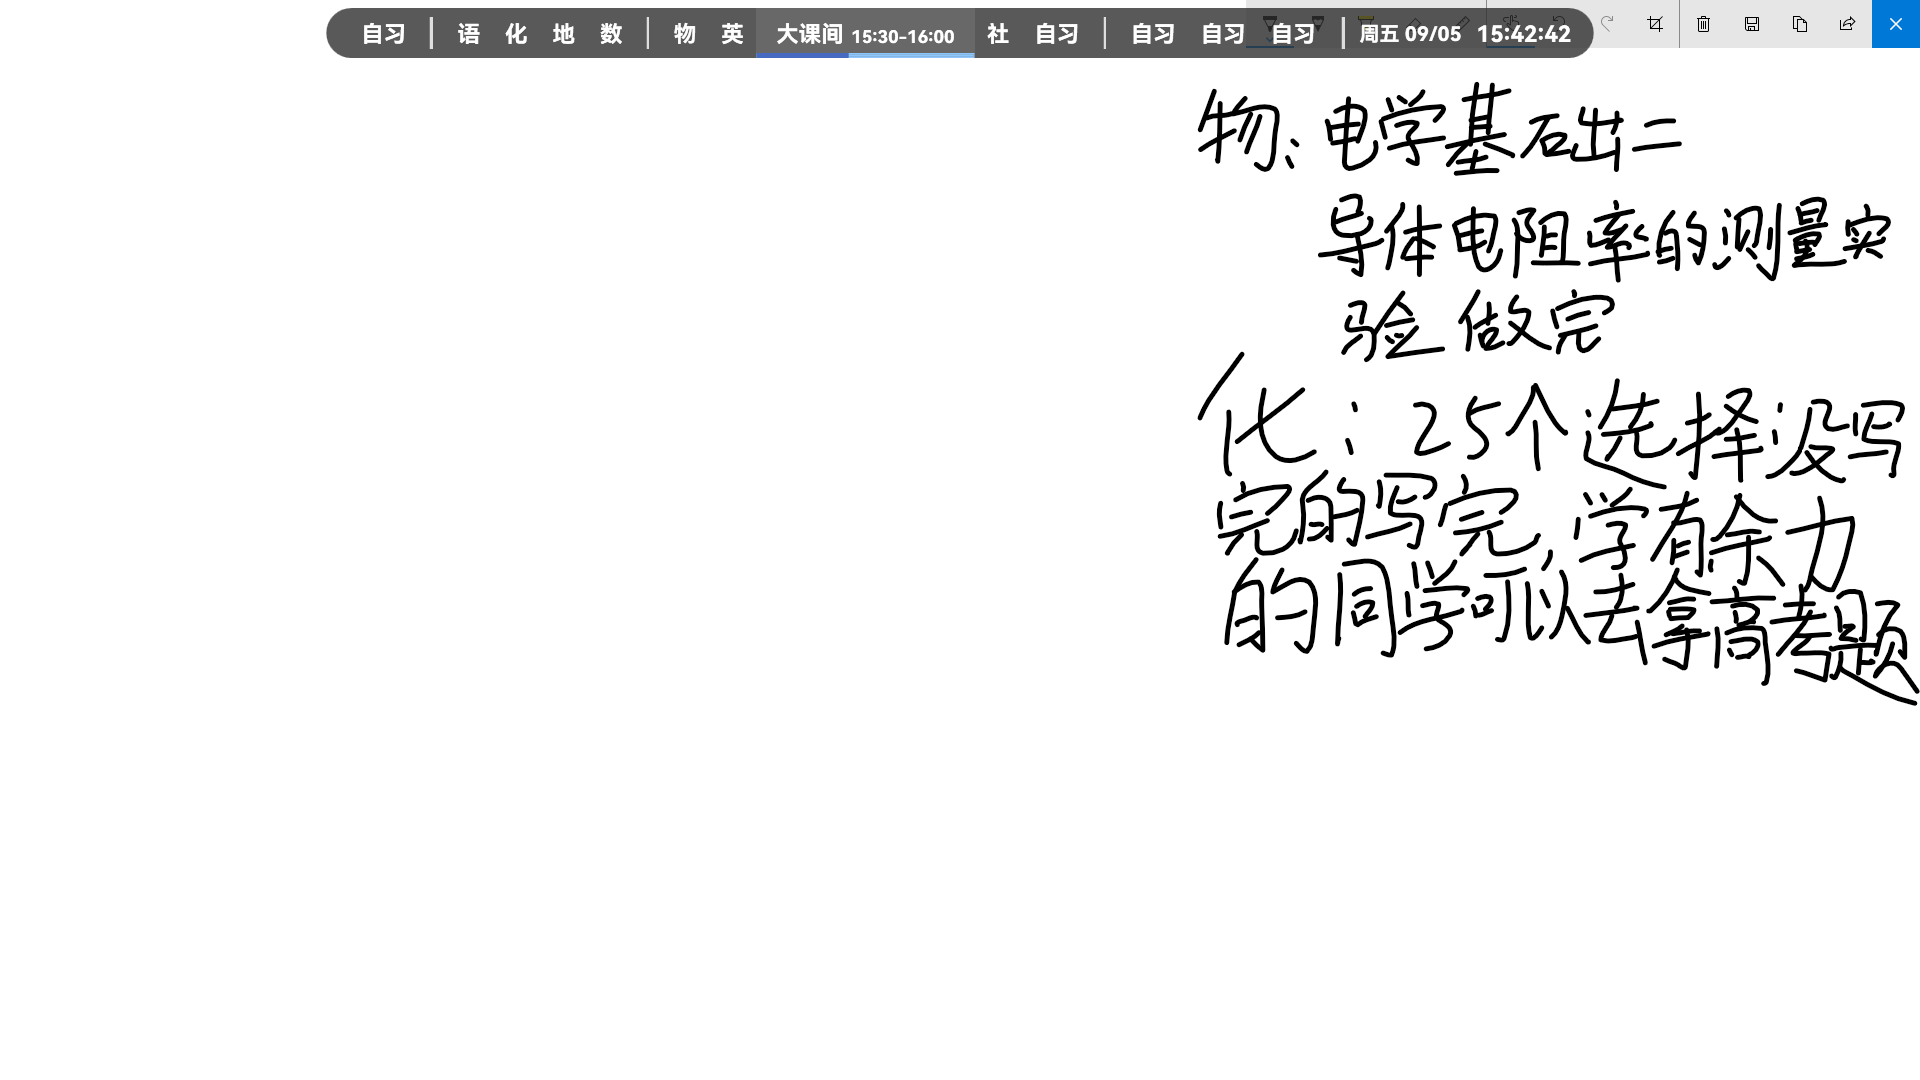 自习 | 语 化 地 数 | 物 英 大课间 15:30-16:00 社 自习 | 自习 自习 自习 | 周五 09/05 15:42:42
物：电学基础二
导体电阻率的测量实
验做完
化：25个选择没写
完的写完,学有余力
的同学可以去拿高考题